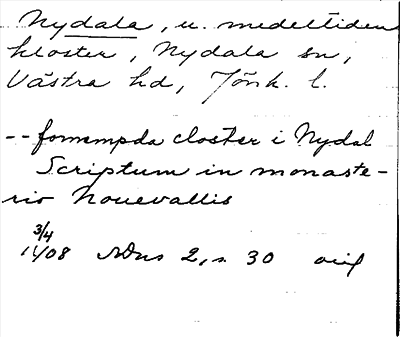 Nydala, u. medeltiden
kloster, Nydala sn,
Västra hd, Jönk. l.
-- fornempda closter i Nydal
Scriptum in monaste-
rio Nouevallis
3/4
1408 SDns 2, s. 30 orig